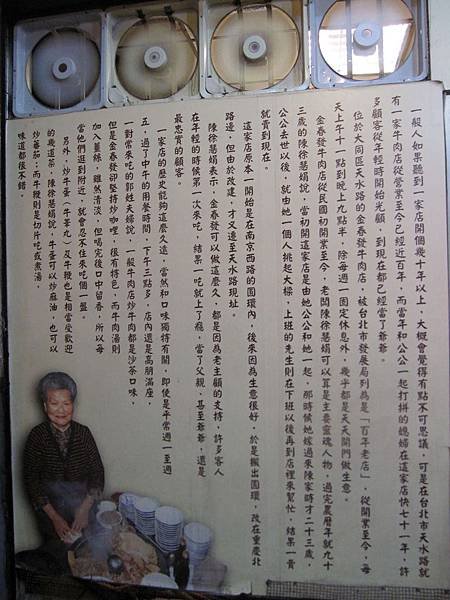 一般人如果聽到一家店開個幾十年以上，大概會覺得有點不可思議，可是在台北市天水路就
有一家牛肉店從營業至今已經近百年，而當年和公公一起打拼的媳婦在這家店快七十一年，許
多顧客從年輕時開始光顧，到現在都已經當了爺爺。
位於大同區天水路的金春發牛肉店，被台北市發展局列為是「百年老店」，從開業至今，每
天上午十一點到晚上九點半，除每週一固定休息外，幾乎都是天天開門做生意。
金春發牛肉店從民國初開業至今，老闆陳徐慧娟可以算是主要靈魂人物，過完農曆年就九十
三歲的陳徐慧娟說，當初開這家店是由她公公和她一起，那時候她嫁過來陳家時才二十三歲，
公公去世以後，就由她一個人挑起大樑，上班的先生則在下班以後再到店裡來幫忙，結果一賣
就賣到現在。
這家店原本一開始是在南京西路的圓環內，後來因為生意很好，於是搬出圓環，改在重慶北
路邊，但由於改建，才又遷至天水路現址。
陳徐慧娟表示，金春發可以做這麼久，都是因為老主顧的支持，許多客人
在年輕的時候第一次來吃，結果一吃就上了癮，當了父親、甚至爺爺，還是
最忠實的顧客。
一家店的歷史能夠這麼久遠，當然和口味獨特有關，即使是平常週一至週
五，過了中午的用餐時間，下午三點多，店內還是高朋滿座，
一對常來吃的郭姓夫婦說，一般牛肉店炒牛肉都是沙茶口味，
但是金春發卻堅持炒咖哩，很有特色，而牛肉湯則
加入薑絲，雖然清淡，但喝完後口中留香，所以每
當他們逛到附近，就會忍不住來吃個一盤。
另外，炒牛蕾（牛睪丸）及牛鞭也是相當受歡迎
的幾道菜，陳徐慧娟說，牛蕾可以炒麻油，也可以
炒蕃茄；而牛鞭則是切片吃或煮湯，
味道都很不錯。